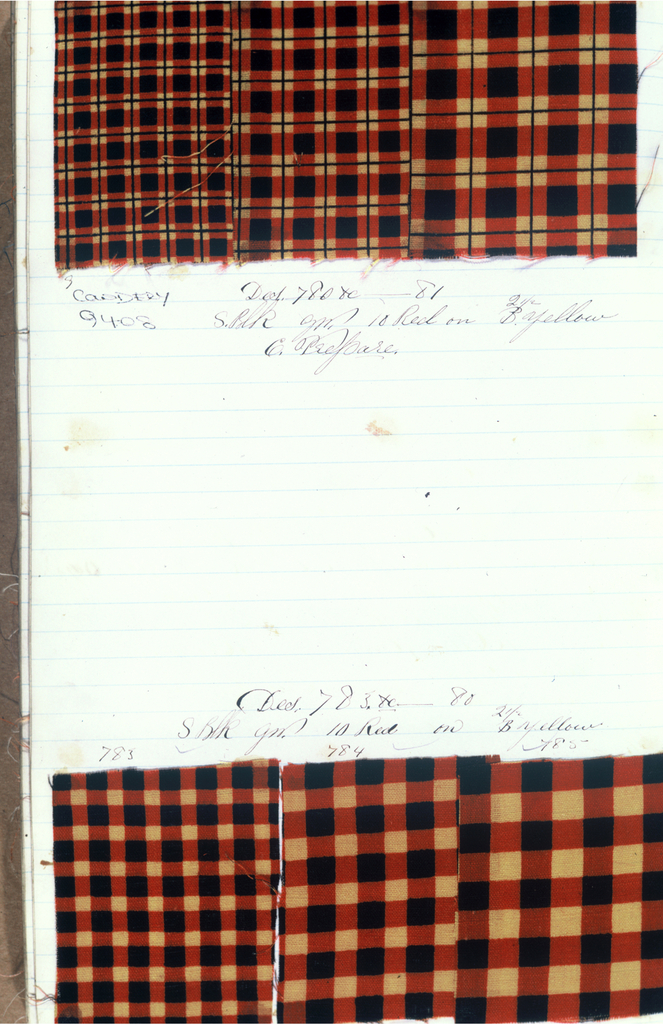 9
CODDERY
9408
Des. 780 &c — 81
S. Blk gr. 10 Red on B. Yellow
C. Prepare.
Des. 783. &c — 80
S Blk gr. 10 Red on B Yellow
783 784 785